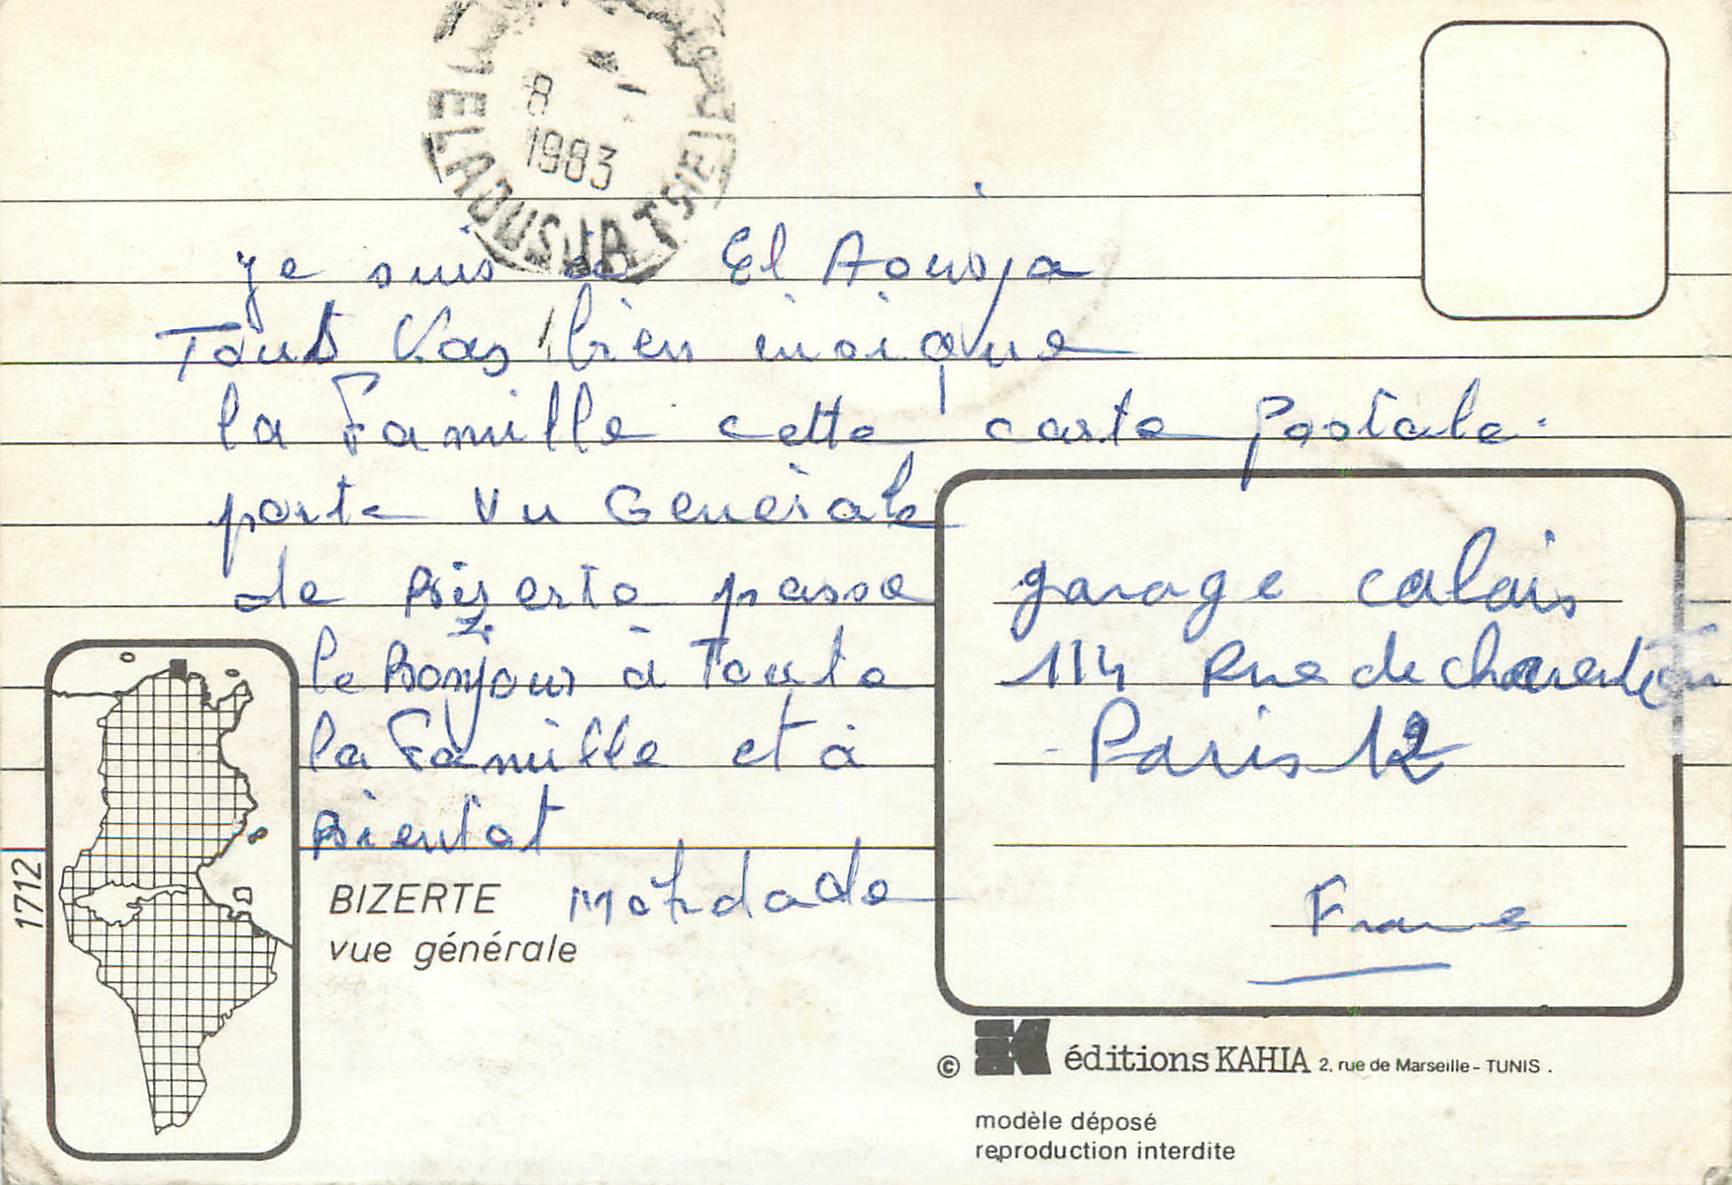 8
1983
EL AOUSJA TSIE
je suis à El Aousja
Tout Vas bien insi que
la Famille cette carte Postale.
porte Vu Generale
de Bizerte passe
le Bonjour à Toute
la Famille et à
Bientot
garage calais
114 Rue de charenton
Paris 12
France
1712
BIZERTE
vue générale
© éditions KAHIA 2, rue de Marseille - TUNIS .
modèle déposé
reproduction interdite